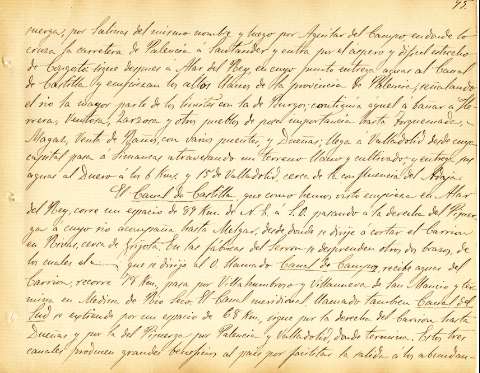 95
nuerga, por Salinas del mismo nombre y luego por Aguilar del Campo, en donde lo
cruza la carretera de Palencia á Santander y entra por el aspero y dificil estrecho
de Congosto, sigue despues á Alar del Rey, en cuyo punto entrega aguas al Canal
de Castilla y empiezan los altos llanos de la provincia de Palencia, señalando
el rio la mayor parte de los limites con la de Burgos, continua aquel á bañar a He-
rrera, Ventosa, Zarzosa y otros pueblos de poca importancia hasta Torquemada,
Magaz, Venta de Baños, con varios puentes, y Dueñas; llega a Valladolid desde cuya
capital pasa á Simancas atravesando un terreno llano y cultivado y entrega sus
aguas al Duero á los 6 kms. y 15 de Valladolid, cerca de la confluencia del Adaja.
El Canal de Castilla, que como hemos visto empieza en Alar
del Rey, corre un espacio de 89 km. de N. E. á S.O. pasando á la derecha del Pisuer-
ga á cuyo rio acompaña hasta Melgar, desde donde se dirije á cortar el Carrion
en Ponlas, cerca de Grijota. En las fábricas del Serron se desprenden otros dos brazos, de
los cuales el que se dirije al O. llamado Canal de Campos, recibe aguas del
Carrion, recorre 78 km. pasa por Villaumbroso y Villanueva de San Mancio y ter-
mina en Medina de Rio Seco. El Canal meridional llamado tambien Canal del
Sud se extiende por un espacio de 68 km. sigue por la derecha del Carrion hasta
Dueñas y por la del Pisuerga por Palencia y Valladolid, donde termina. Estos tres
canales producen grandes beneficios al pais por facilitar la salida á los abundan-